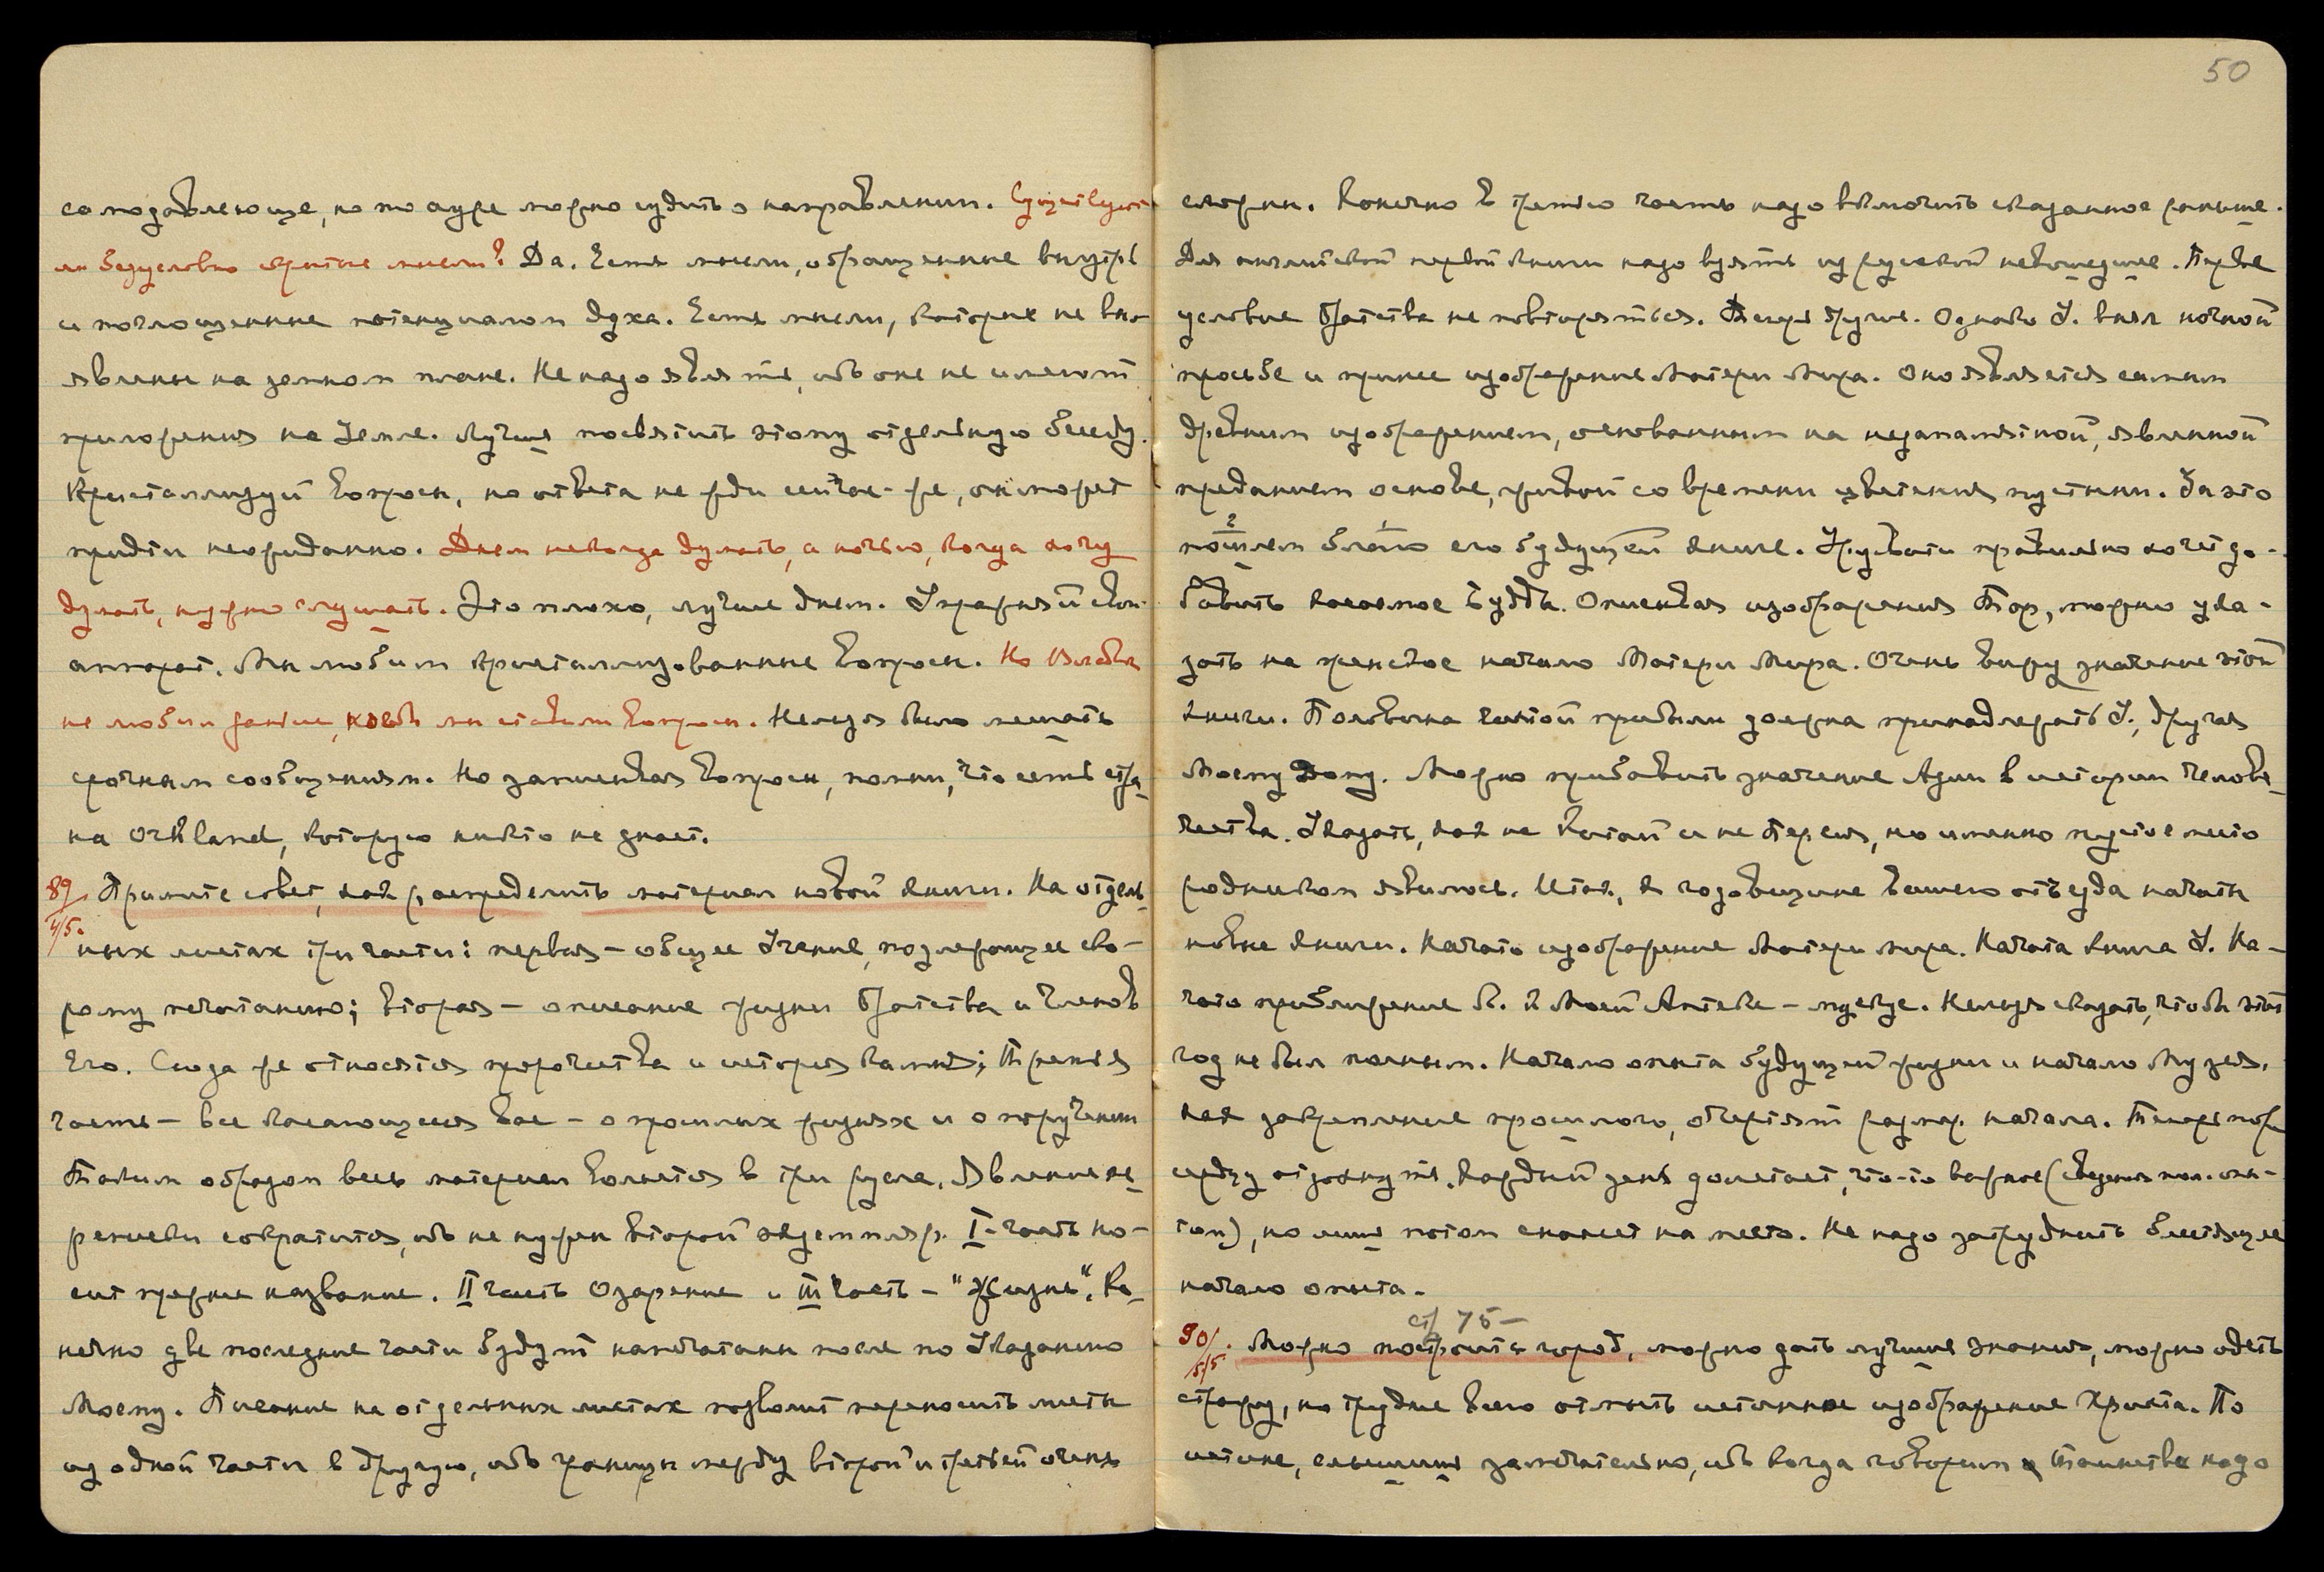 самодовлеюще, но по ауре можно судить о направлении. Существуют
ли безусловно скрытые мысли? Да. Есть мысли, обращенные внутрь
и поглощенные потенциалом духа. Есть мысли, которые не вно-
явлены на земном плане. Не надо являть, ибо они не имеют
приложения на Земле. Лучше посвятить этому отдельную беседу.
Кристаллизуй вопросы, но ответа не жди сейчас-же, он может
придти неожиданно. Днем некогда думать, а ночью, когда хочу
думать, нужно слушать. Это плохо, лучше днем. Упражняй свой
аппарат. Мы любим кристаллизованные вопросы. Но Владыка
не любил раньше, когда мы ставили вопросы. Нельзя было мешать
срочным сообщениям. Но записывая вопросы, помни, что есть стра-
на Orkland, которую никто не знает.
89/ Примите совет, как распределить материал новой книги. На отдель-
4/5. ных листах три части: первая – общее Учение, подлежащее ско-
рому печатанию; вторая – описание жизни Братства и членов
Его. Сюда же относятся пророчества и история камня; Третья
часть – все касающееся Вас – о прошлых жизнях и о поручении
Таким образом весь материал вольется в три русла. Явление пе-
реписки сократится, ибо не нужен второй экземпляр. I-часть но-
сит прежнее название. II часть Озарение и III часть – "Жизнь". Ко-
нечно две последние части будут напечатаны после по Указанию
Моему. Писание на отдельных листах позволит переносить листы
из одной части в другую, ибо границы между второй и третьей очень
50
сложны. Конечно в третью часть надо включить сказанное раньше.
Для английской первой книги надо взять из русской невошедшее. Первые
условие Братства не повторяться. Теперь другое. Однако У. внял ночной
просьбе и принес изображение Матери Мира. Оно является самым
древним изображением, основанным на незапамятной, явленной
преданием основе, живой со времени цветения пустыни. За это
?
пошлем благо его будущей книге. Урусвати правильно хочет до-
бавить касаемое Будды. Описывая изображения Тар, можно ука-
зать на женское начало Матери Мира. Очень вижу значение этой
книги. Половина чистой прибыли должна принадлежать У., другая
Моему Дому. Можно прибавить значение Азии в истории челове-
чества. Указать, как не Китай и не Персия, но именно пустое место
родником явилось. Итак, к годовщине вашего отъезда начаты
новые книги. Начато изображение Матери Мира. Начата книга У. На-
чато приближение к Моей Аптеке – музейце. Нельзя сказать, чтобы этот
год не был полным. Начало опыта будущей жизни и начало Музея,
как закрепление прошлого, обчертят размер начала. Теперь пора
сердцу отдохнуть. Каждый день долетает, что-то важное (сведения
том), но лишь потом станет на место. Не надо затруднять блестящее
начало опыта.
ст 75 –
90/. Можно построить город, можно дать лучшие знания, можно одеть
5/5 стражу, но труднее всего отмыть истинное изображение Христа. По
истине, слышите замечательно, ибо когда говорим о Таинстве надо